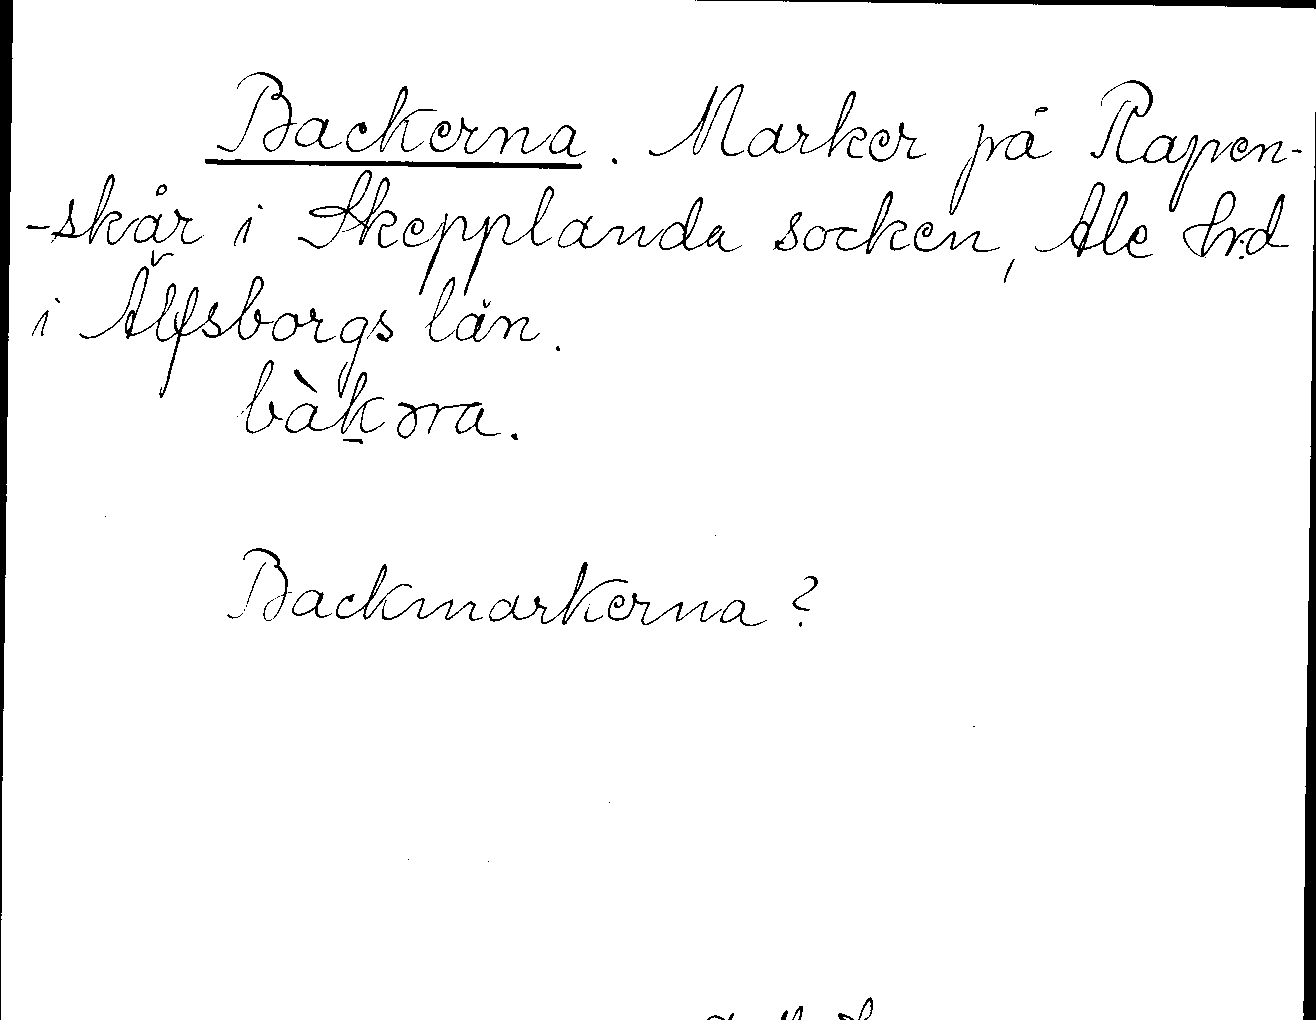 Backerna. Marker på Rapen-
-skår i Skepplanda socken, Ale hrd
i Älfsborgs län.
bàḵərra.
Backmarkerna?